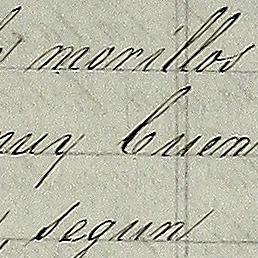 morillos
muy buen
segun